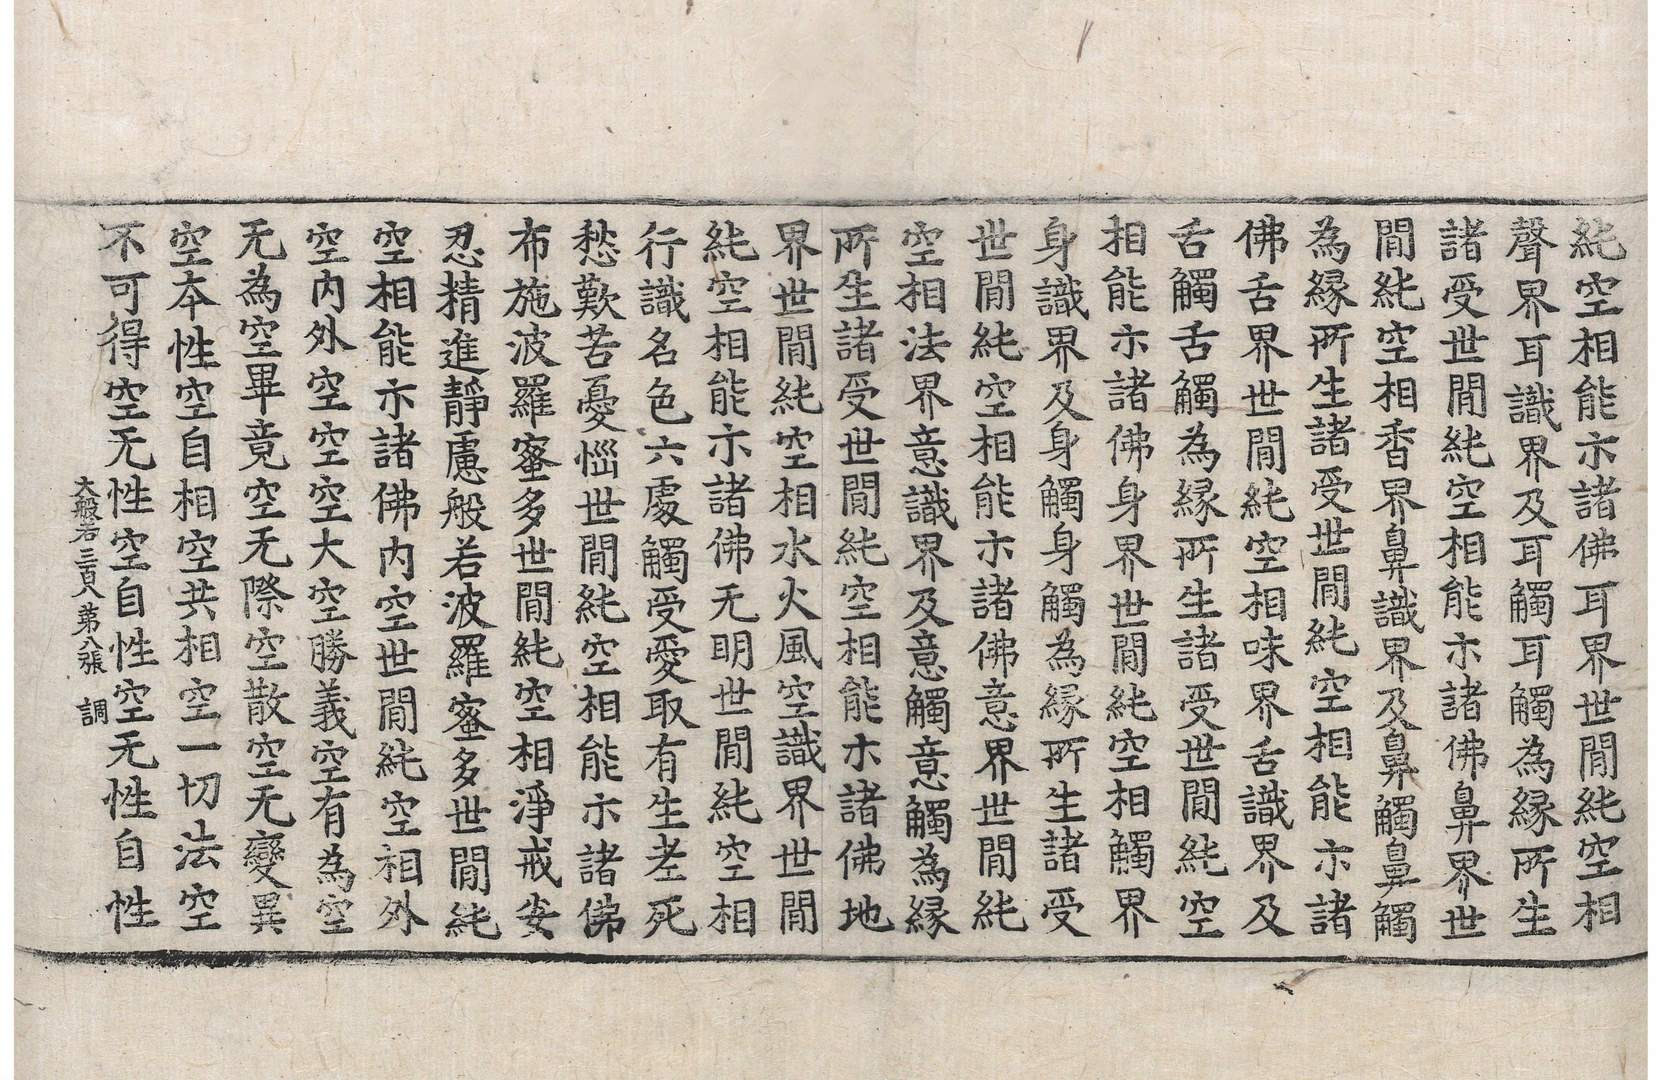 純空相能示諸佛耳界世閒純空相
聲界耳識界及耳觸耳觸為緣所生
諸受世閒純空相能示諸佛鼻界世
閒純空相香界鼻識界及鼻觸鼻觸
為緣所生諸受世閒純空相能示諸
佛舌界世閒純空相味界舌識界及
舌觸舌觸為緣所生諸受世閒純空
相能示諸佛身界世閒純空相觸界
身識界及身觸身觸為緣所生諸受
世閒純空相能示諸佛意界世閒純
空相法界意識界及意觸意觸為緣
所生諸受世閒純空相能示諸佛地
界世閒純空相水火風空識界世閒
純空相能示諸佛无明世閒純空相
行識名色六處觸受愛取有生老死
愁歎苦憂惱世閒純空相能示諸佛
布施波羅蜜多世閒純空相淨戒安
忍精進靜慮般若波羅蜜多世閒純
空相能示諸佛內空世閒純空相外
空內外空空空大空勝義空有為空
无為空畢竟空无際空散空无變異
空本性空自相空共相空一切法空
不可得空无性空自性空无性自性
大般若三百八 第八張 調